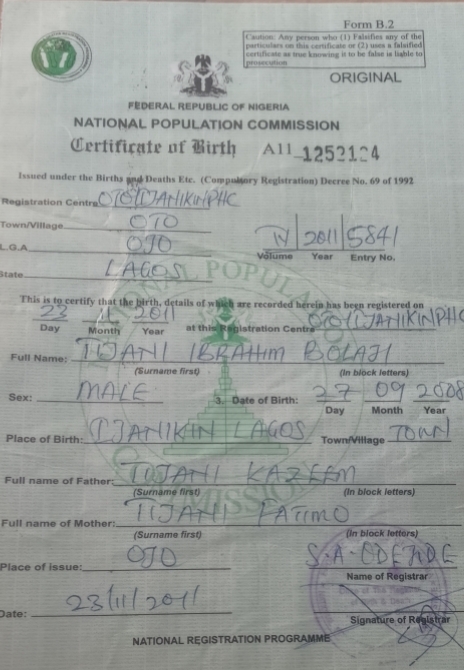 Form B.2
Caution: Any person who (1) Falsifies any of the
particulars on this certificate or (2) uses a falsified
certificate as true knowing it to be false is liable to
prosecution
ORIGINAL
FEDERAL REPUBLIC OF NIGERIA
NATIONAL POPULATION COMMISSION
Certificate of Birth A11 1252124
Issued under the Births and Deaths Etc. (Compulsory Registration) Decree No. 69 of 1992
Registration Centre OTO/IJANIKIN PHC
Town/Village OTO
IV 2011 5841
L.G.A. OJO
Volume Year Entry No.
State LAGOS
This is to certify that the birth, details of which are recorded herein has been registered on
23 11 2011 at this Registration Centre OTO/IJANIKIN PHC
Day Month Year
Full Name: TIJANI IBRAHIM BOLAJI
(Surname first) (In block letters)
Sex: MALE 3. Date of Birth: 27 09 2008
Day Month Year
Place of Birth: IJANIKIN LAGOS Town/Village TOWN
Full name of Father: TIJANI KAZEEM
(Surname first) (In block letters)
Full name of Mother: TIJANI FATIMO
(Surname first) (In block letters)
Place of issue: OJO
Name of Registrar
Date: 23/11/2011
Signature of Registrar
NATIONAL REGISTRATION PROGRAMME